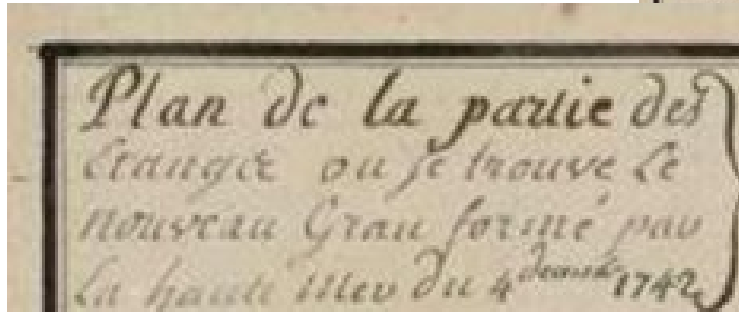 Plan de la partie des
Etangs ou se trouve Le
nouveau Grau formé par
La haute Mer du 4 1742